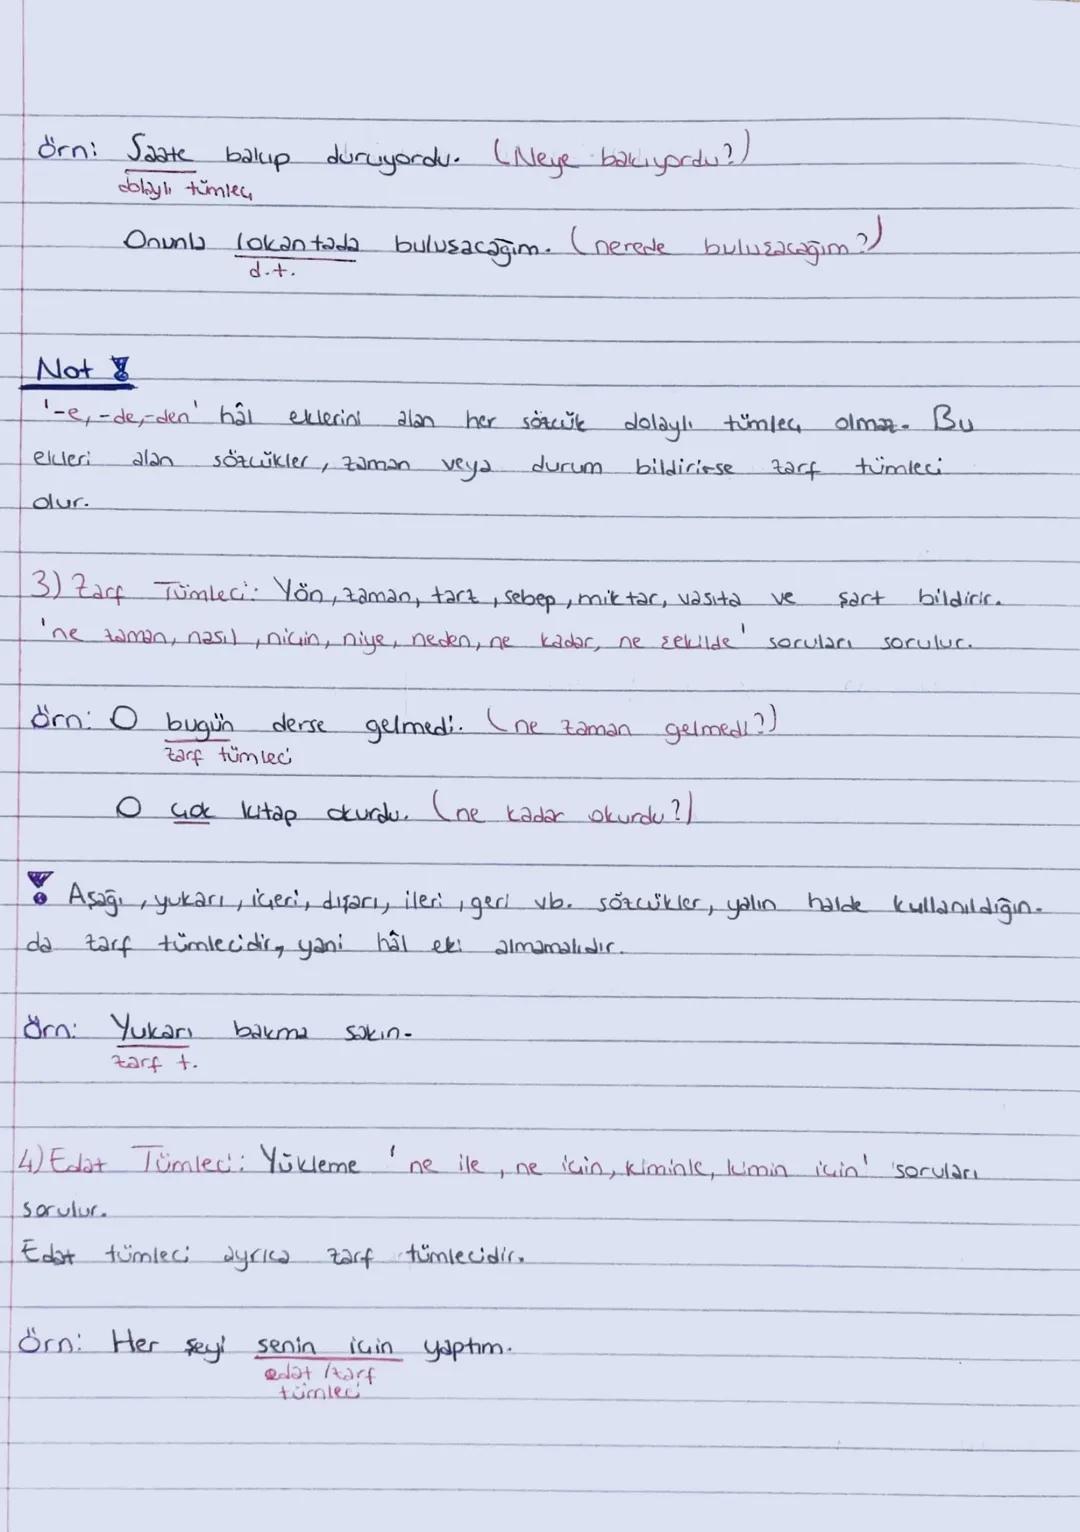 Örn: Saate bakıp duruyordu. (Neye bakıyordu?)
dolaylı tümleç
Onunla lokantada buluşacağım. (nerede buluşacağım?)
d.t.
Not !
'-e, -de, -den' hâl eklerini alan her sözcük dolaylı tümleç olmaz. Bu
ekleri alan sözcükler, zaman veya durum bildirirse zarf tümleci
olur.
3) Zarf Tümleci: Yön, zaman, tarz, sebep, miktar, vasıta ve şart bildirir.
'ne zaman, nasıl, niçin, niye, neden, ne kadar, ne şekilde' soruları sorulur.
örn: O bugün derse gelmedi. (ne zaman gelmedi?)
zarf tümleci
O çok kitap okurdu. (ne kadar okurdu?)
! Aşağı, yukarı, içeri, dışarı, ileri, geri vb. sözcükler, yalın halde kullanıldığın-
da zarf tümlecidir, yani hâl eki almamalıdır.
Örn: Yukarı bakma sakın.
zarf t.
4) Edat Tümleci: Yükleme 'ne ile, ne için, kiminle, kimin için' soruları
sorulur.
Edat tümleci ayrıca zarf tümlecidir.
Örn: Her şeyi senin için yaptım.
edat /zarf
tümleci